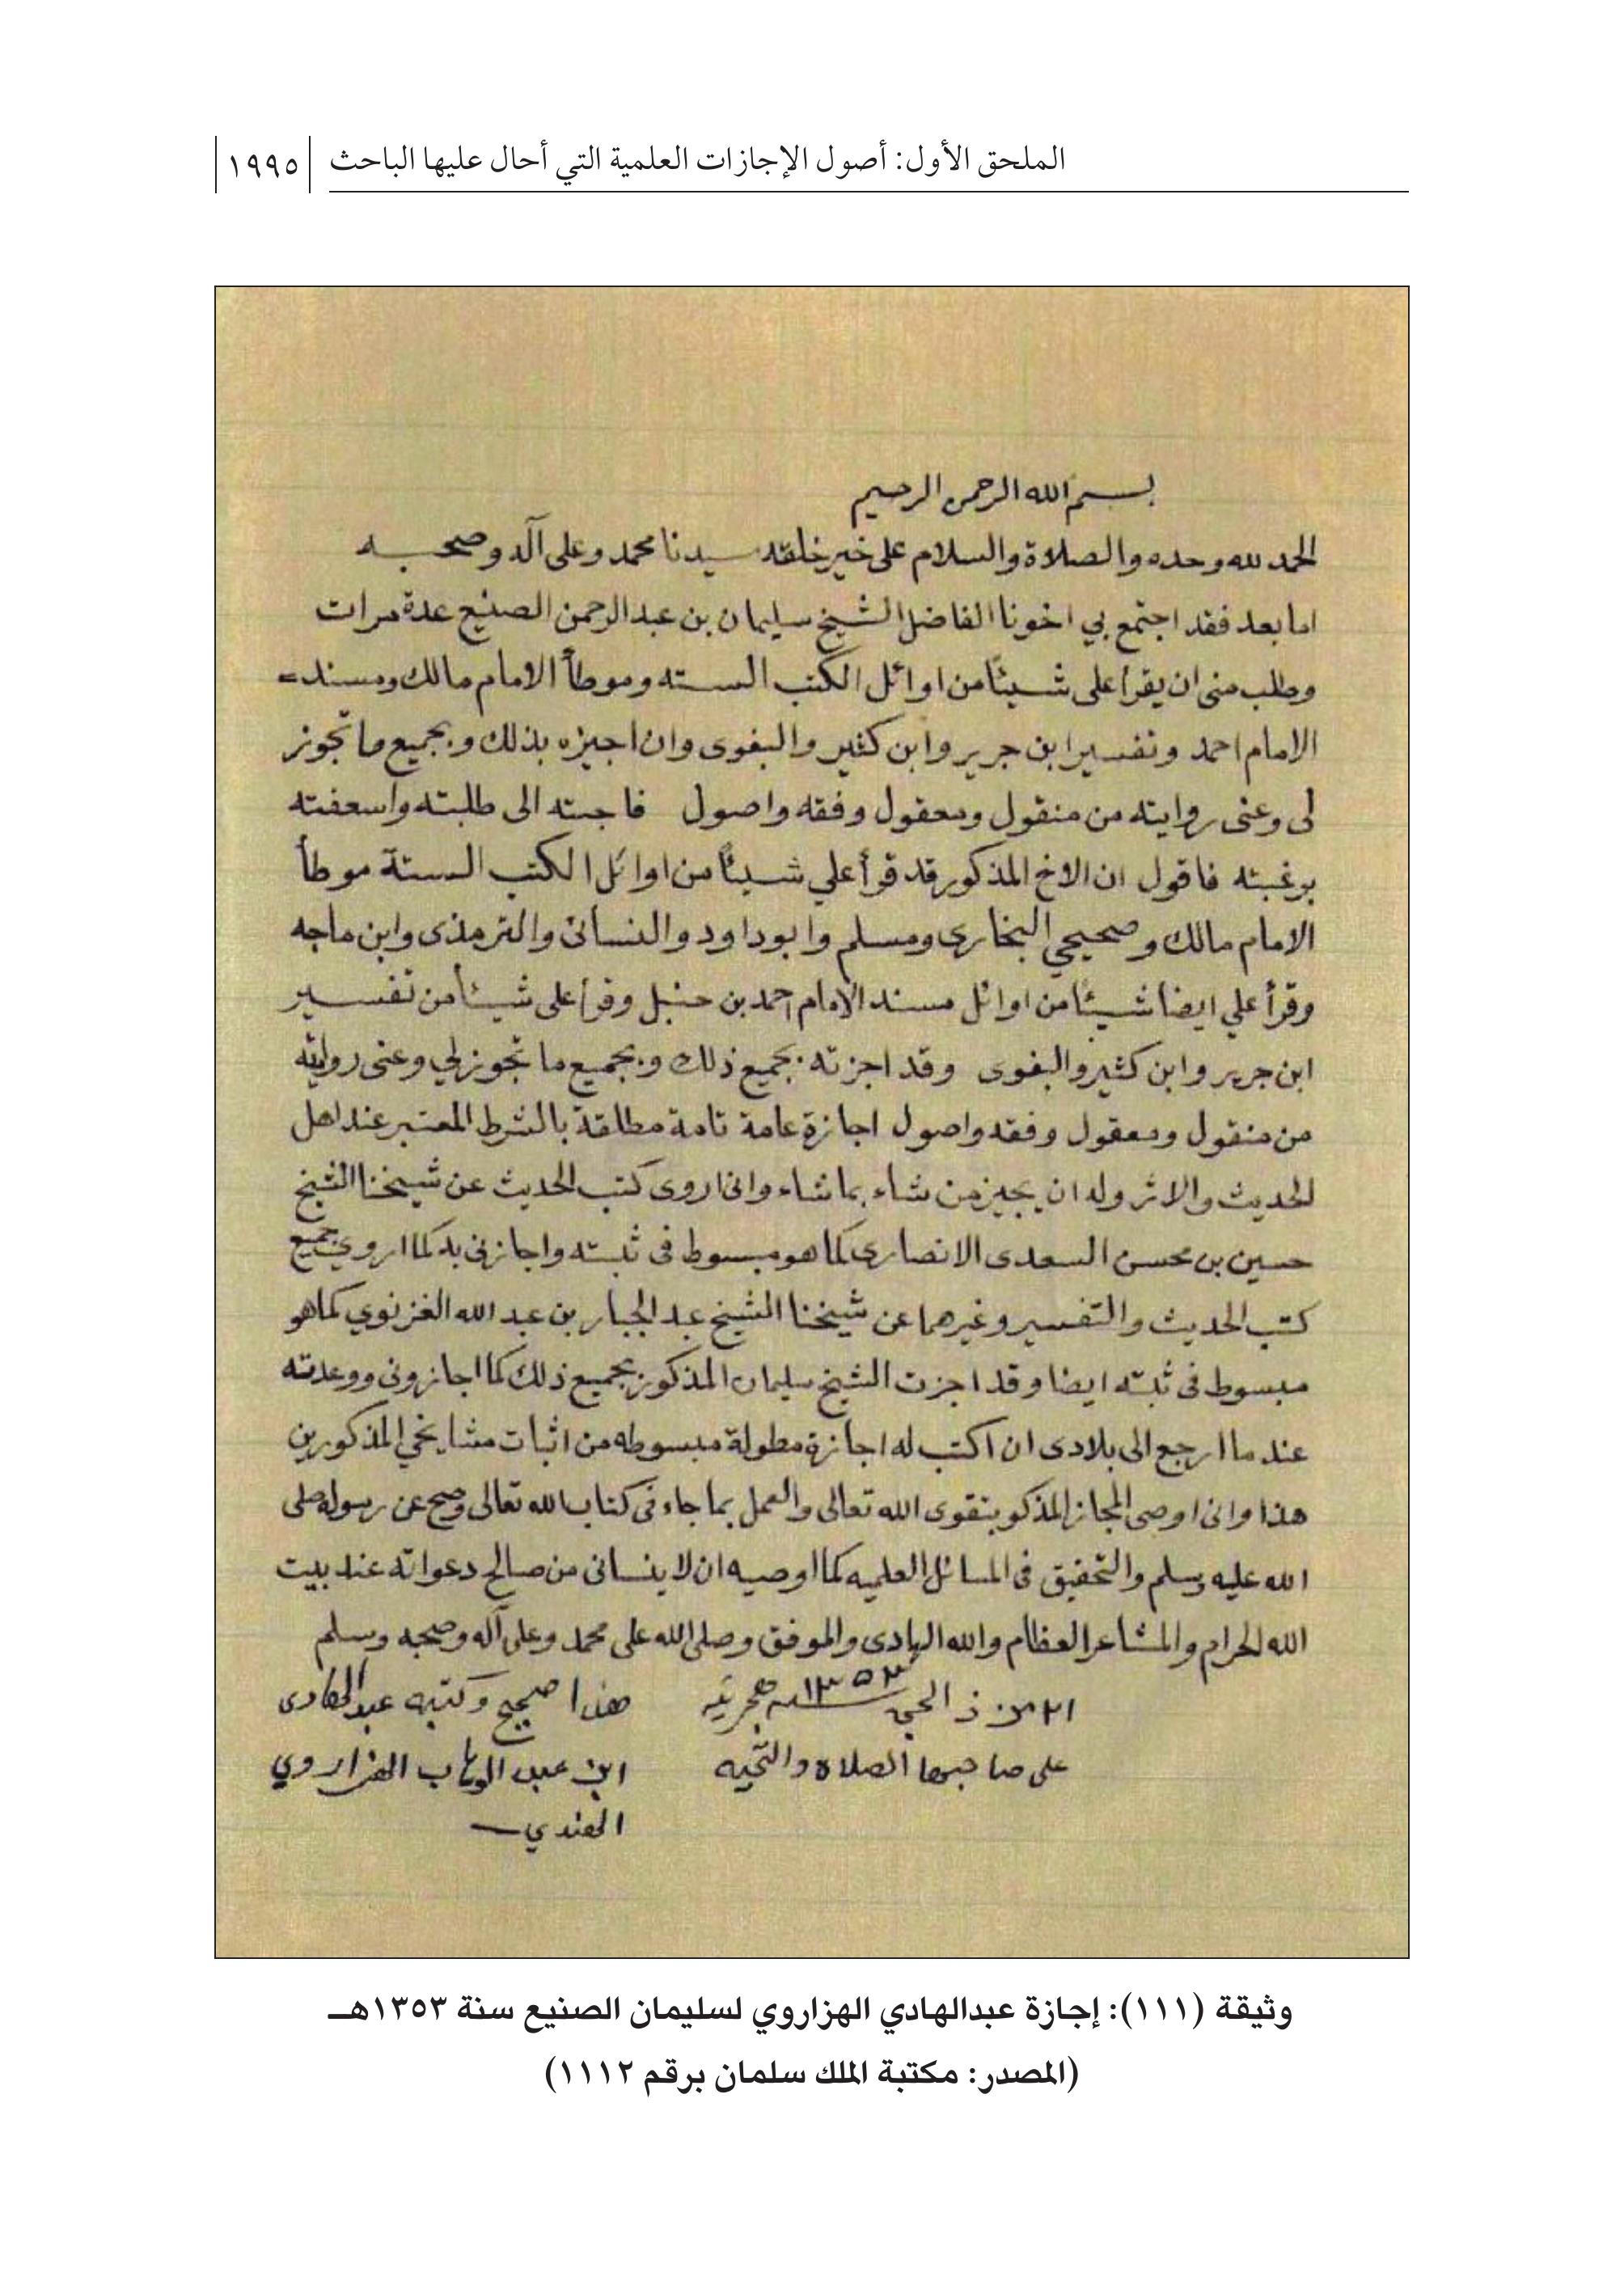 الملحق الأول: أصول الإجازات العلمية التي أحال عليها الباحث ١٩٩٥
بسم الله الرحمن الرحيم
الحمد لله وحده والصلاة والسلام على خير خلقه سيدنا محمد وعلى آله وصحبه
اما بعد فقد اجتمع بي اخونا الفاضل الشيخ سليمان بن عبد الرحمن الصنيع عدة مرات
وطلب منى ان يقرا على شيئاً من اوائل الكتب السته وموطأ الامام مالك ومسند =
الامام احمد وتفسير ابن جرير وابن كثير والبغوى وان اجيزه بذلك وبجميع ما تجوز
لى وعنى روايته من منقول ومعقول وفقه واصول فاجبته الى طلبته واسعفته
برغبته فاقول ان الاخ المذكور قد قرأ علي شيئاً من اوائل الكتب الستة موطأ
الامام مالك وصحيحي البخارى ومسلم وابو داود والنسائى والترمذى وابن ماجه
وقرأ علي ايضا شيئا من اوائل مسند الامام احمد بن حنبل وقرا على شيئا من تفسير
ابن جرير وابن كثير والبغوى وقد اجزته بجميع ذلك وبجميع ما تجوز لي وعنى روايته
من منقول ومعقول وفقه واصول اجازة عامة تامة مطلقة بالشرط المعتبر عند اهل
الحديث والاثر وله ان يجيز من شاء بما شاء وانى اروى كتب الحديث عن شيخنا الشيخ
حسين بن محسن السعدى الانصارى كما هو مبسوط فى ثبته واجازنى به كما اروي جميع
كتب الحديث والتفسير وغيرهما عن شيخنا الشيخ عبد الجبار بن عبد الله الغزنوي كما هو
مبسوط فى ثبته ايضا وقد اجزت الشيخ سليمان المذكور بجميع ذلك كما اجازونى ووعدته
عند ما ارجع الى بلادى ان اكتب له اجازة مطولة مبسوطه من اثبات مشايخي المذكورين
هذا وانى اوصى المجاز المذكو بتقوى الله تعالى والعمل بما جاء فى كتاب الله تعالى وصح عن رسوله صلى
الله عليه وسلم والتحقيق فى المسائل العلميه كما اوصيه ان لا ينسانى من صالح دعواته عند بيت
الله الحرام والمشاعر العظام والله الهادى والموفق وصلى الله على محمد وعلى آله وصحبه وسلم
٢١ من ذ الحجه ١٣٥٣ هجريه هذا صحيح وكتبه عبد الهادى
على صاحبها الصلاة والتحيه ابن عبد الوهاب الهزاروي
الهندي
وثيقة (١١١): إجازة عبدالهادي الهزاروي لسليمان الصنيع سنة ١٣٥٣هـ
(المصدر: مكتبة الملك سلمان برقم ١١١٢)